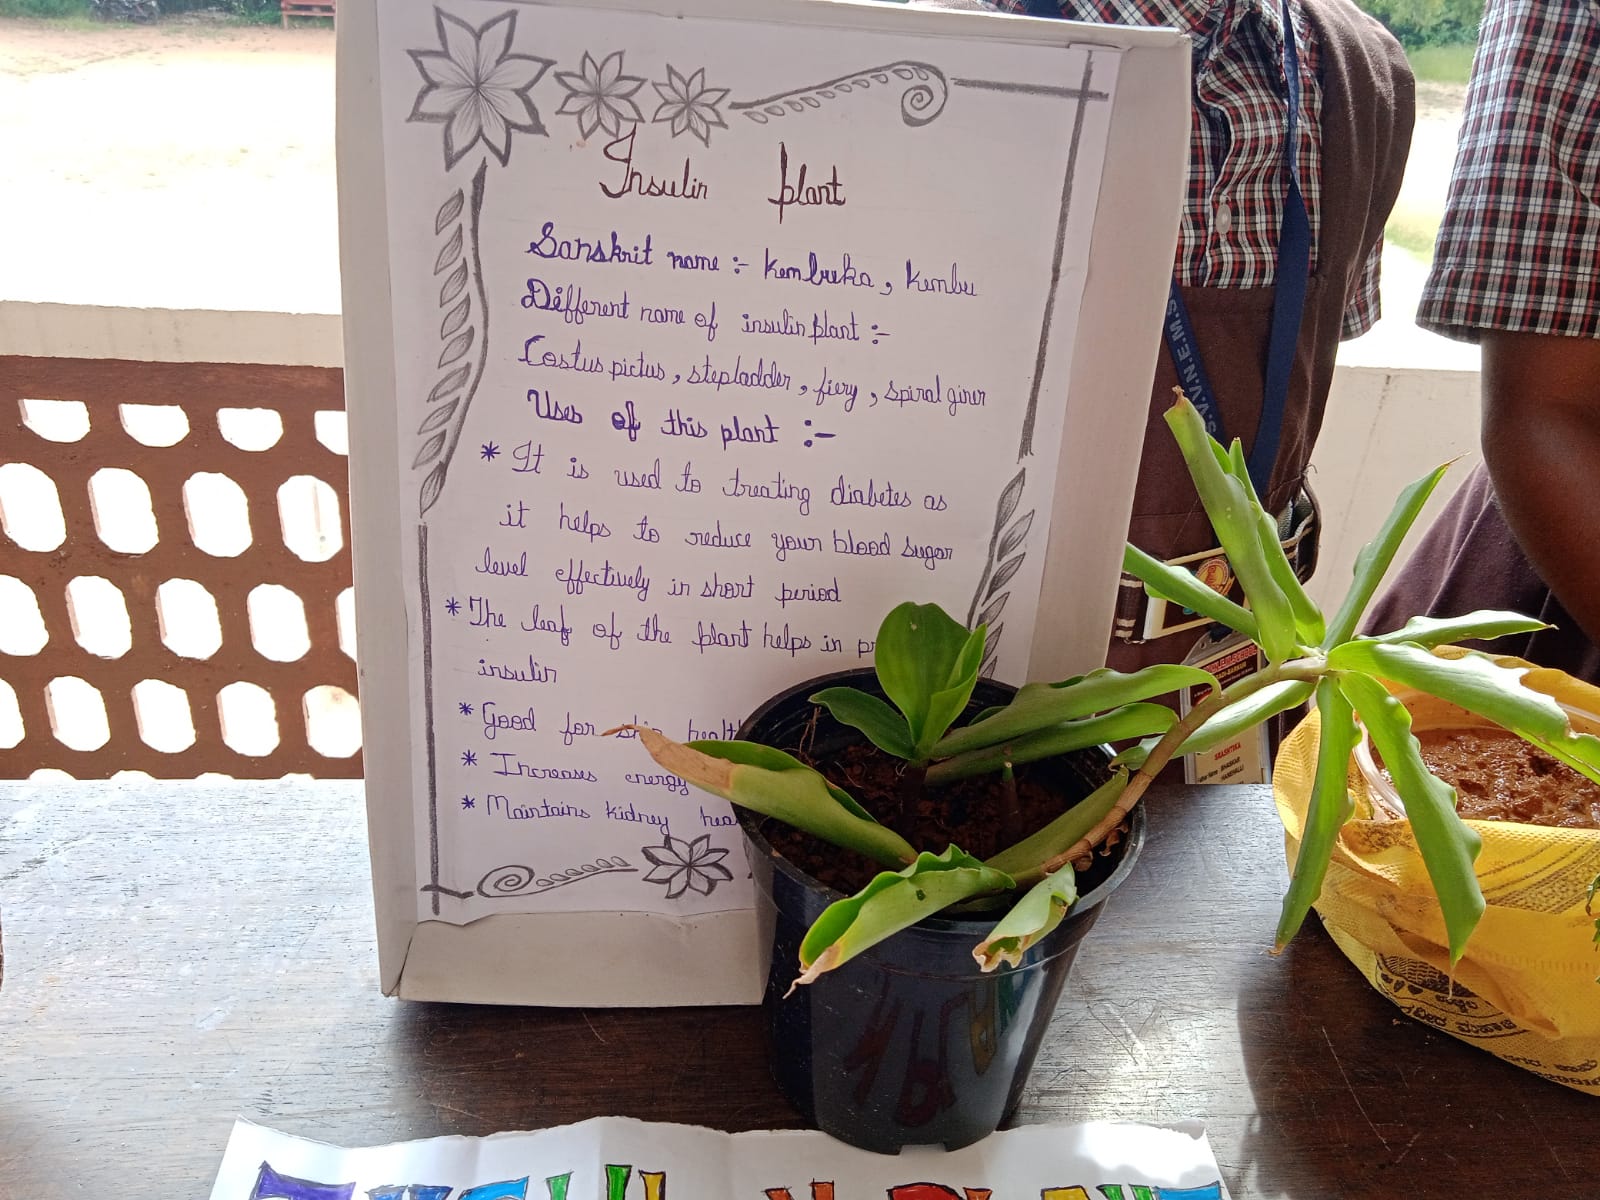 Insulin plant
Sanskrit name :- Kembuka, Kembu
Different name of insulin plant :-
Costus pictus, stepladder, fiery, spiral giner
Uses of this plant :-
* It is used to treating diabetes as
it helps to reduce your blood sugar
level effectively in short period
* The leaf of the plant helps in
insulin
* Good for skin
* Increases energy
* Maintains kidney
S.V.V.N.E.M.S
INSULIN PLANT